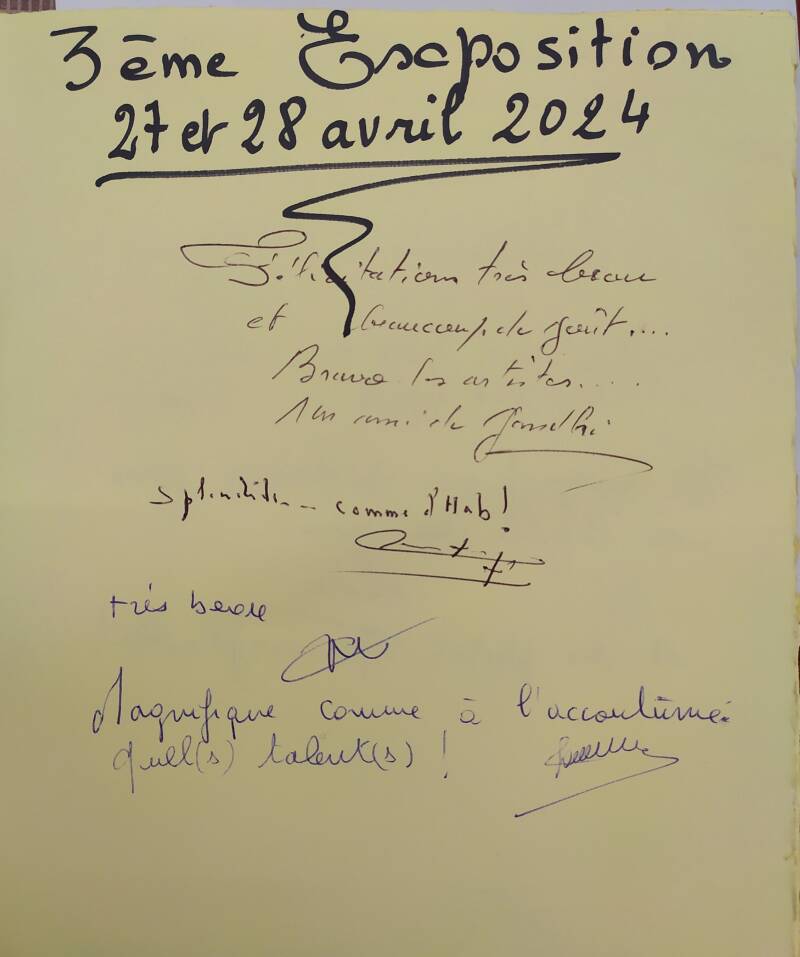 3ème Exposition
27 et 28 avril 2024
Félicitations très beau
et beaucoup de goût....
Bravo les artistes....
Un ami de Gandhi
Splendide - comme d'Hab!
très beau
Magnifique comme à l'accoutûmé.
Quel(s) talent(s) !